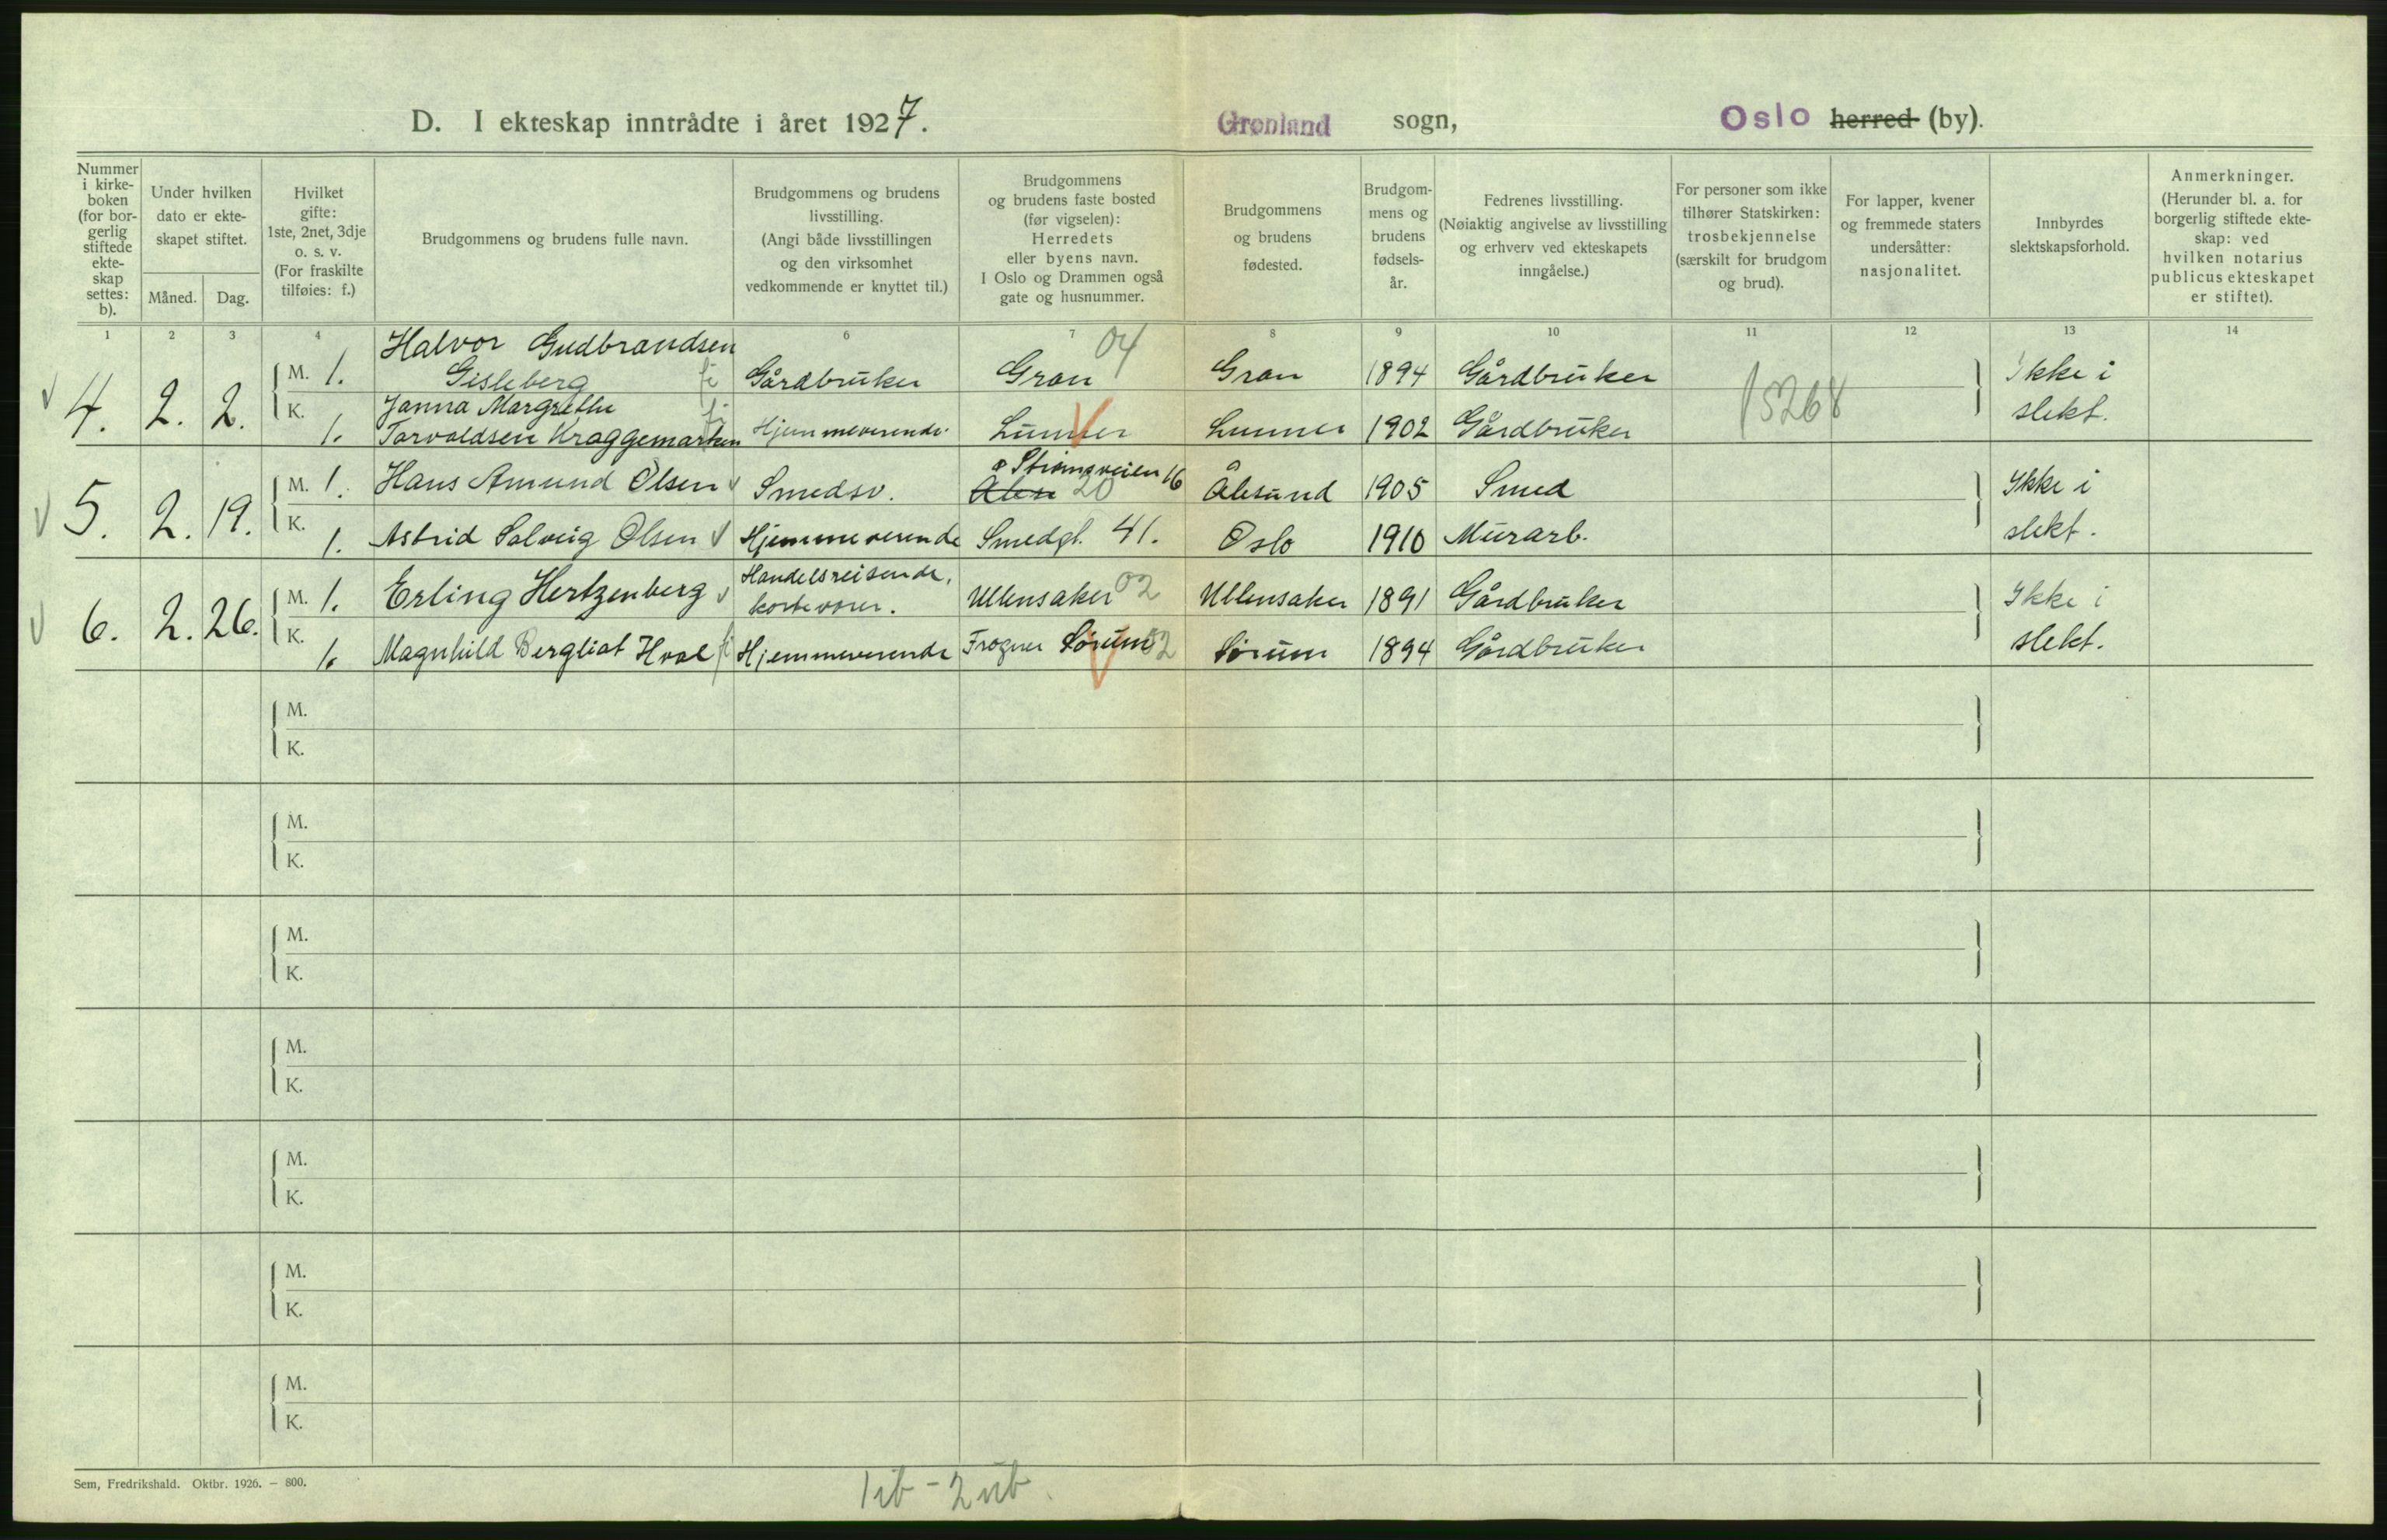 D. I ekteskap inntrådte i året 1927. Grønland sogn, Oslo herred (by).
Nummer i kirke- boken (for bor- gerlig stiftede ekte- skap settes: b).
Under hvilken dato er ekte- skapet stiftet.
Måned. Dag.
Hvilket gifte: 1ste, 2net, 3dje o. s. v. (For fraskilte tilføies: f.)
Brudgommens og brudens fulle navn.
Brudgommens og brudens livsstilling. (Angi både livsstillingen og den virksomhet vedkommende er knyttet til.)
Brudgommens og brudens faste bosted (før vigselen): Herredets eller byens navn. I Oslo og Drammen også gate og husnummer.
Brudgommens og brudens fødested.
Brudgom- mens og brudens fødsels- år.
Fedrenes livsstilling. (Nøiaktig angivelse av livsstilling og erhverv ved ekteskapets inngåelse.)
For personer som ikke tilhører Statskirken: trosbekjennelse (særskilt for brudgom og brud).
For lapper, kvener og fremmede staters undersåtter: nasjonalitet.
Innbyrdes slektskapsforhold.
Anmerkninger. (Herunder bl. a. for borgerlig stiftede ekte- skap: ved hvilken notarius publicus ekteskapet er stiftet).
1 2 3 4 6 7 8 9 10 11 12 13 14
4. 2. 2. M. 1. Halvor Gudbrandsen Gisleberg Gårdbruker Gran 04 Gran 1894 Gårdbruker 15268 Ikke i slekt.
K. 1. Janna Margrethe Torvaldsen Kraggemarken Hjemmeverende Lunner Lunner 1902 Gårdbruker
5. 2. 19. M. 1. Hans Amund Olsen Smedsv. Strømsveien 16 Åles 20 Ålesund 1905 Smed Ikke i slekt.
K. 1. Astrid Solveig Olsen Hjemmeverende Smedgt. 41. Oslo 1910 Murarb.
6. 2. 26. M. 1. Erling Hertzenberg Handelsreisende, kortevarer. Ullensaker 02 Ullensaker 1891 Gårdbruker Ikke i slekt.
K. 1. Magnhild Bergliot Hval Hjemmeverende Frogner Sørum 02 Sørum 1894 Gårdbruker
M.
K.
M.
K.
M.
K.
M.
K.
M.
K.
M.
K.
M.
K.
Sem, Fredrikshald. Oktbr. 1926. — 800.
1 ib - 2 ub.